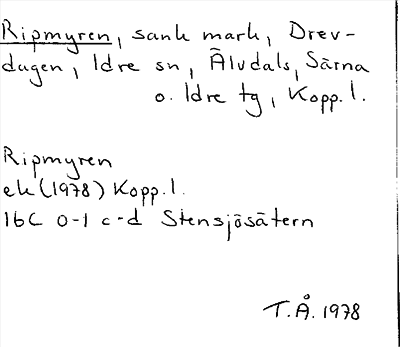 Ripmyren, sank mark, Drev-
dagen, Idre sn, Älvdals, Särna
o. Idre tg, Kopp. l.
Ripmyren
ek (1978) Kopp. l.
16C 0-1 c-d Stensjösätern
T.Å. 1978